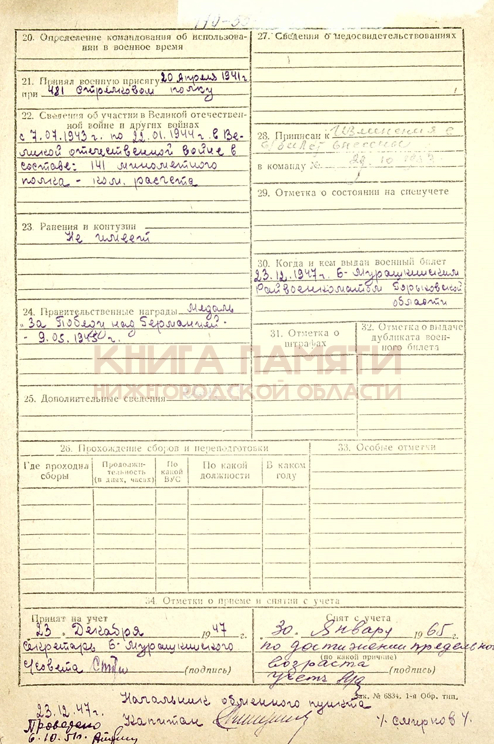 20. Определение командования об использова-
нии в военное время
21. Принял военную присягу 20 апреля 1941 г.
при 481 стрелковом полку
22. Сведения об участии в Великой отечествен-
ной войне и других войнах
с 7.07.1943 г. по 22.01.1944 г. в Ве-
ликой отечественной войне в
составе: 141 минометного
полка - ком. расчета
23. Ранения и контузии
Не имеет
24. Правительственные награды Медаль
"За Победу над Германией"
- 9.05.1945 г.
25. Дополнительные сведения
26. Прохождение сборов и переподготовки
Где проходил сборы
Продолжи-
тельность
(в днях, часах)
По
какой
ВУС
По какой
должности
В каком
году
27. Сведения о медосвидетельствованиях
28. Приписан к
в команду №
29. Отметка о состоянии на спецучете
30. Когда и кем выдан военный билет
23.12.1947 г. Б-Мурашкинским
Райвоенкоматом Горьковской
области
31. Отметка о
штрафах
32. Отметка о выдаче
дубликата воен-
ного билета
33. Особые отметки
34. Отметки о приеме и снятии с учета
Принят на учет
23 Декабря 1947 г.
Секретарь Б-Мурашкинского
(подпись)
Снят с учета
30 Январь 1965 г.
по достижении предельного
(по какой причине)
возраста
(подпись)
Зак. № 6834. 1-я Обр. тип.
23.12.47 г.
Начальник обменного пункта
Капитан
/Смирнов/
Проверено
6.10.51 г.
КНИГА ПАМЯТИ
НИЖЕГОРОДСКОЙ ОБЛАСТИ